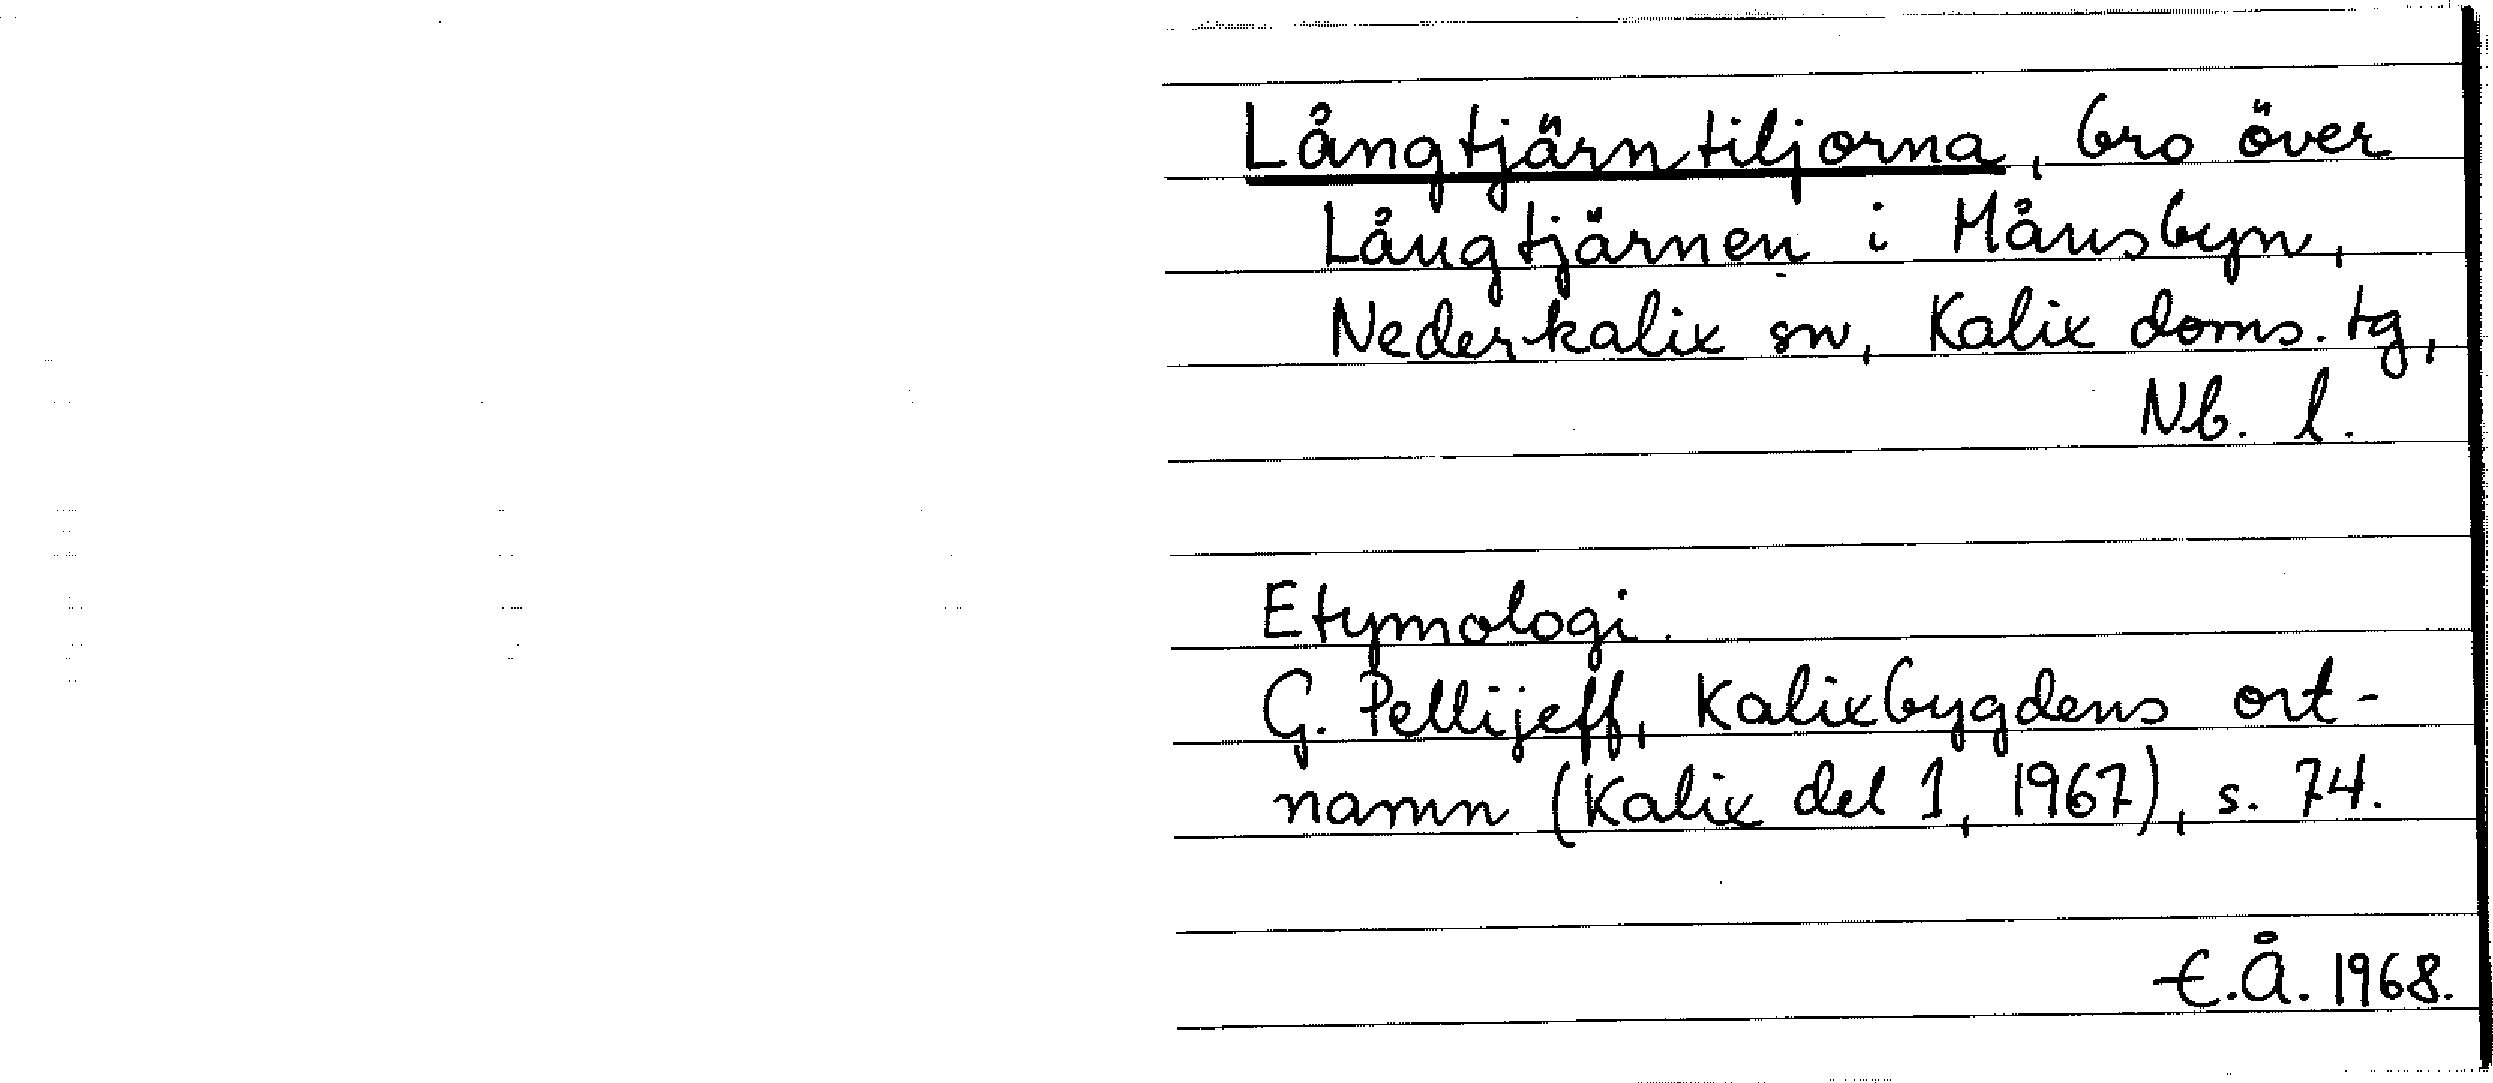 Långtjärntiljorna, bro över
Långtjärnen i Månsbyn,
Nederkalix sn, Kalix doms. tg,
Nb. l.
Etymologi.
G. Pellijeff, Kalixbygdens ort-
namn (Kalix del 1, 1967), s. 74.
E.Å. 1968.